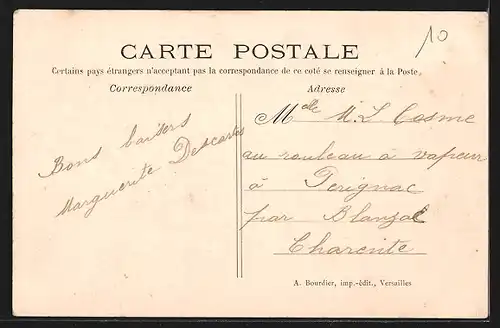 10
CARTE POSTALE
Certains pays étrangers n'acceptant pas la correspondance de ce coté se renseigner à la Poste.
Correspondance
Bons baisers
Marguerite Descartes
Adresse
Melle M. L. Cosme
au rouleau à vapeur
à Perignac
par Blanzac
Charente
A. Bourdier, imp.-édit., Versailles